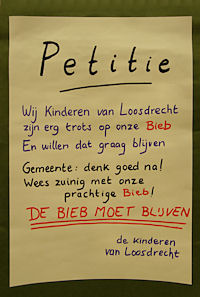 Petitie
Wij Kinderen van Loosdrecht
zijn erg trots op onze Bieb
En willen dat graag blijven
Gemeente: denk goed na!
Wees zuinig met onze
prachtige Bieb!
DE BIEB MOET BLIJVEN
de kinderen
van Loosdrecht